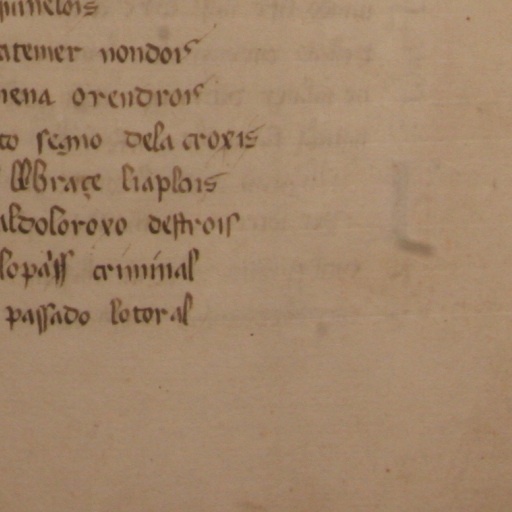 atemer nondois
nena orendrois
to segno dela croxis
braçe liaplois
aldoloroxo destrois
lopass criminal
passado lotoral